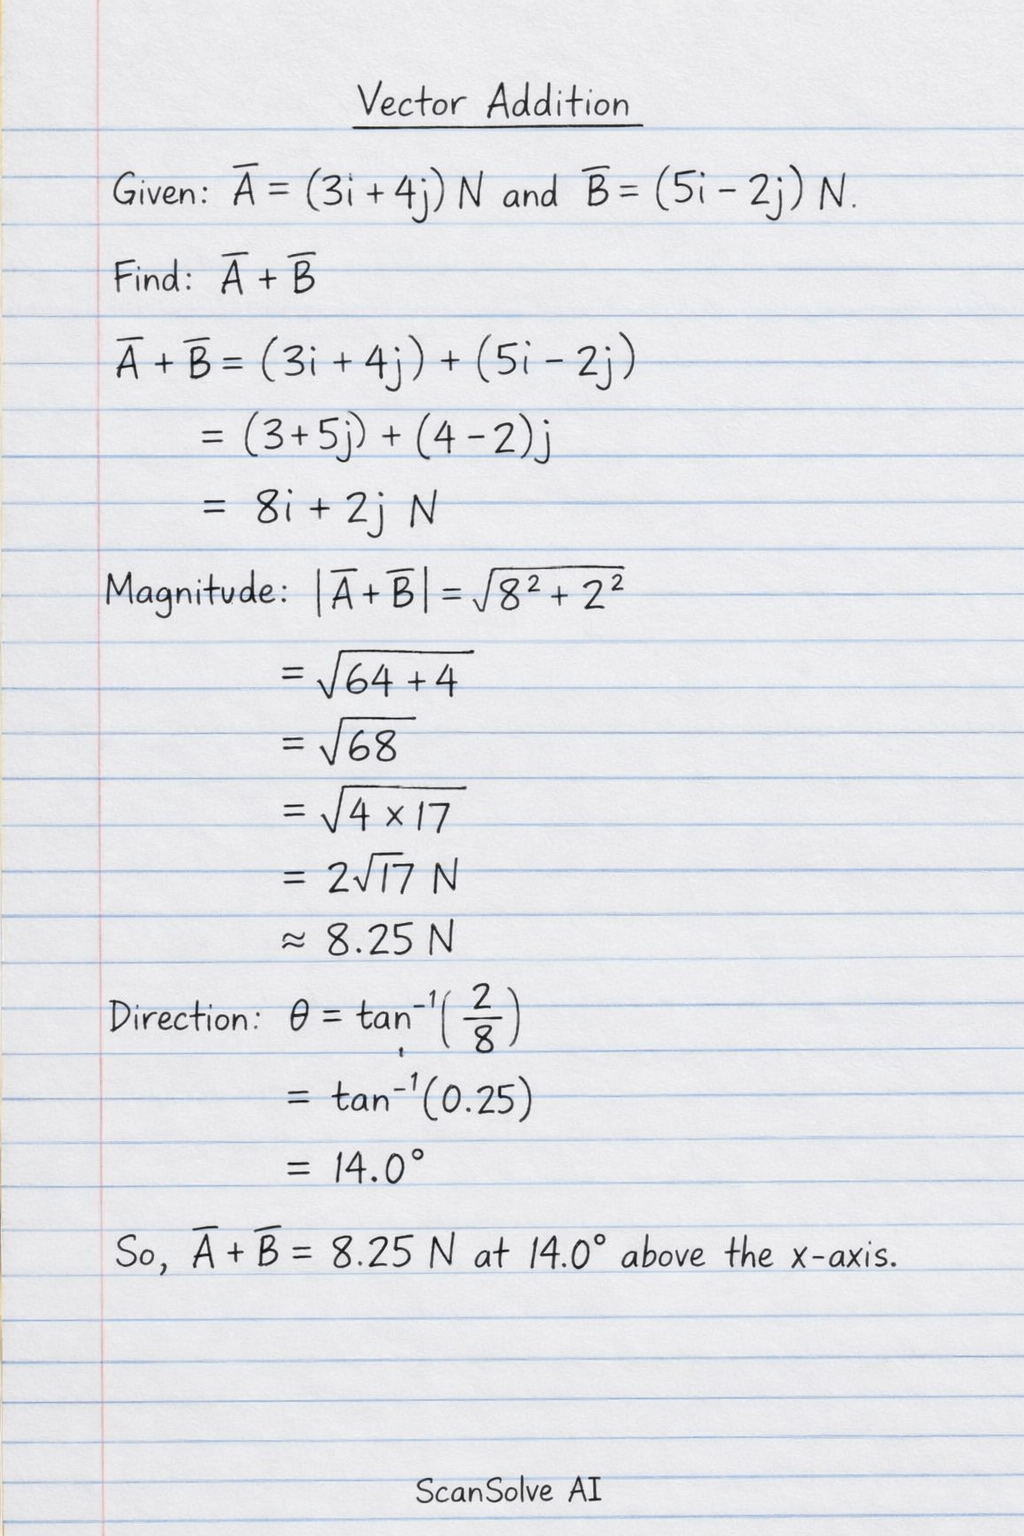 Vector Addition
Given: A̅ = (3i + 4j) N and B̅ = (5i - 2j) N.
Find: A̅ + B̅
A̅ + B̅ = (3i + 4j) + (5i - 2j)
= (3+5j) + (4-2)j
= 8i + 2j N
Magnitude: |A̅ + B̅| = √(8² + 2²)
= √(64 + 4)
= √68
= √(4 × 17)
= 2√17 N
≈ 8.25 N
Direction: θ = tan⁻¹(2/8)
= tan⁻¹(0.25)
= 14.0°
So, A̅ + B̅ = 8.25 N at 14.0° above the x-axis.
ScanSolve AI